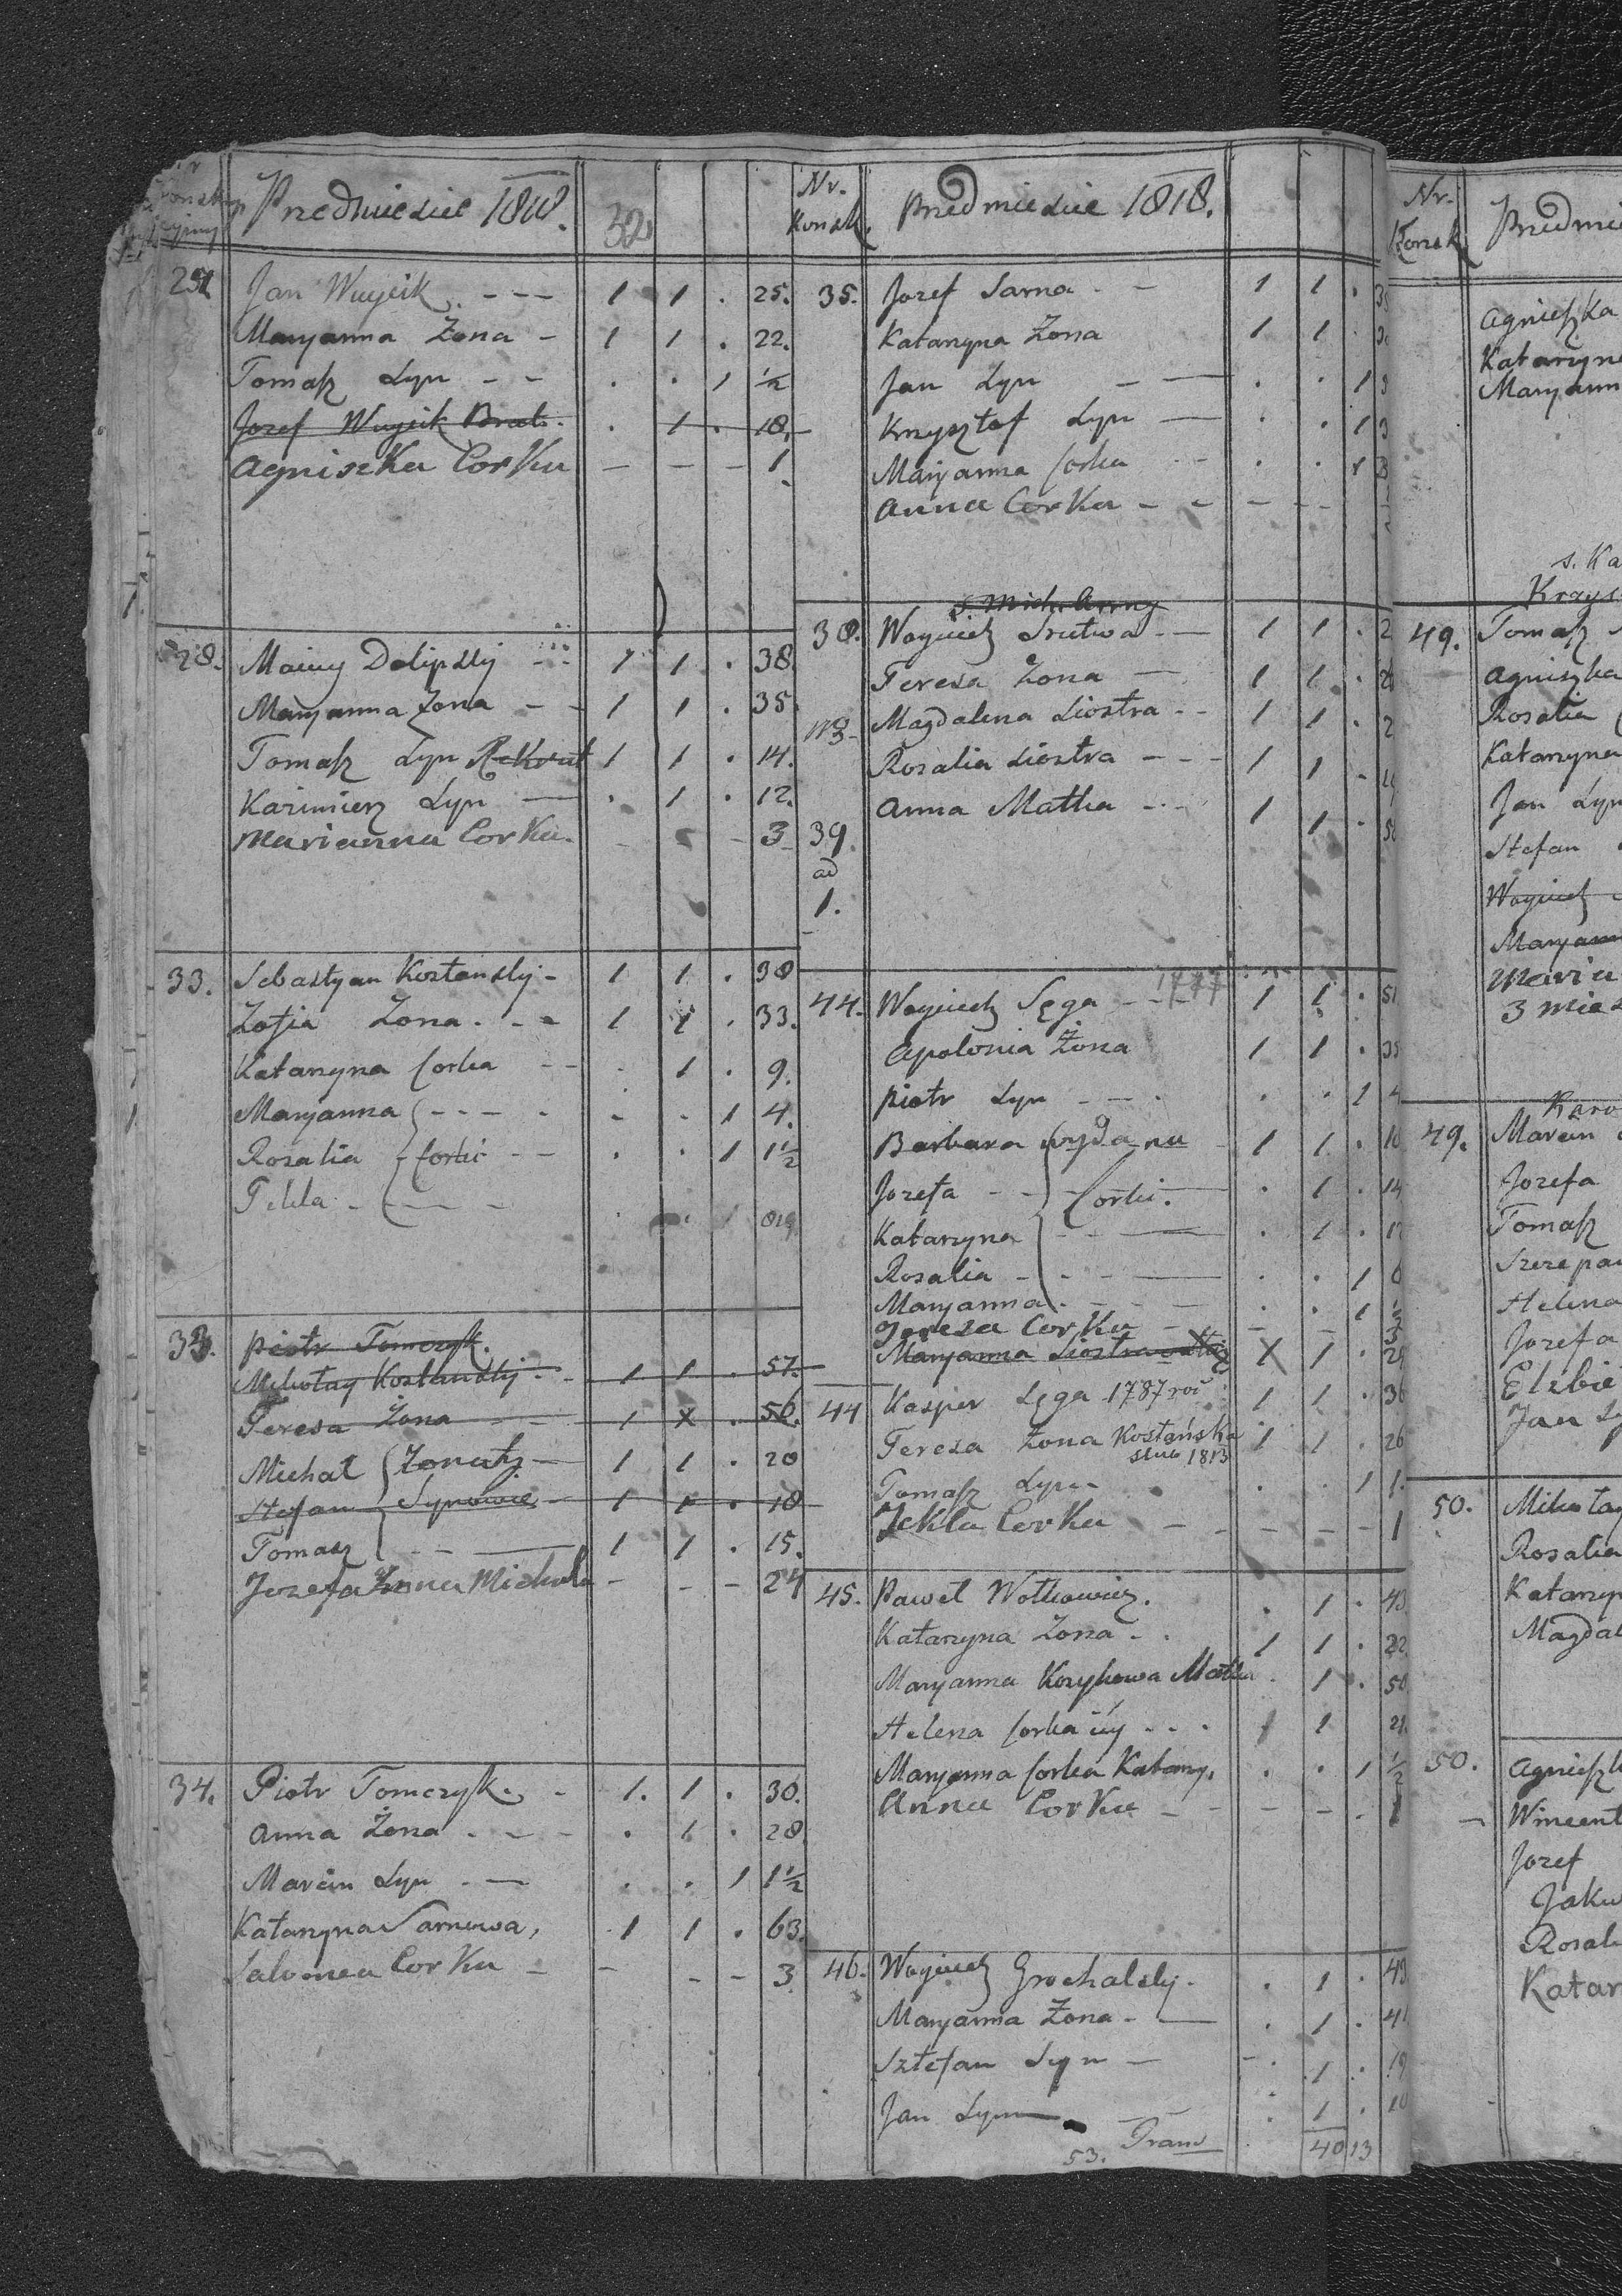 Przedmiescie 1818.
32
251 Jan Wuycik - - - 1 1 . 25.
Maryanna Żona - 1 1 . 22.
Tomasz Syn - - . . 1 ½
Jozef Wuycik Brat . 1 . 18.
Agniszka Corka - - - 1
28. Maciey Dolipsky 1 1 . 38
Maryanna Zona - - 1 1 . 35
Tomasz Syn Rekrut 1 1 . 14.
Kazimierz Syn - . 1 . 12.
Marianna Corka. - - - 3
33. Sebastyan Kostansky - 1 1 . 38
Zofia Zona . - - 1 1 . 33.
Katarzyna Corka - - . 1 . 9.
Maryanna - - - . . . 1 4.
Rozalia Corki - - . . 1 1½
Tekla - - - . . 1
33. Piotr Tomczyk.
Mikołay Kostansky - 1 1 . 57.
Teresa Żona 1 X . 56.
Michał Zonaty - 1 1 . 20
Stefan Synowie 1 1 . 18
Tomasz - - 1 1 . 15.
Jozefa Zona Michala - - - 24
34. Piotr Tomczyk . - 1. 1 . 30.
Anna Żona . - - . 1 . 28
Marcin Syn . - . . 1 1½
Katarzyna Sarnowa, 1 1 . 63.
Salomea Corka - - - - 3
Nr. Konsk. Przedmiescie 1818.
35. Jozef Sarna . - 1 1 .
Katarzyna Zona 1 1 .
Jan Syn - - . . 1
Krzysztof Syn - . . 1 3
Maryanna Corka . . 1
Anna Corka - - - - -
s. Mich. Anny
38. Woyciech Srutwa . - 1 1 . 2
Teresa Zona - 1 1 .
Magdalena Siostra - - 1 1 . 2
Rozalia Siostra - - - 1 1 -
Anna Matka - - - 1 1 .
39.
ad
1.
1777
44. Woyciech Sęga - - - 1 1 . 51
Apolonia Żona 1 1 . 35
Piotr Syn - - . . . 1 4
Barbara wydana 1 1 . 18
Jozefa - - Corki. . 1 . 14
Katarzyna - - . 1 . 12
Rozalia - . - . . 1 8
Maryanna . - - - . . 1 ½
Tereza Corka - - - 3
Maryanna Siostra X 1 .
44 Kasper Sęga 1787 roć 1 1 . 36
Teresa Żona Kostańska 1 1 . 26
slub 1813
Tomasz Syn - . . 1 1.
Tekla Corka - - - - - 1
45. Paweł Wolkowicz. . 1 . 43
Katarzyna Zona . . 1 1 . 22
Maryanna Kozykowa Matka . 1 . 50
Helena Corka iey . . . 1 1 21.
Maryanna Corka Katarzy. . . 1 ½
Anna Corka - - - - . 1
46. Woyciech Grochalsky. . 1 . 49
Maryanna Żona - - . 1 . 41
Sztefan Syn - - . 1 . 19
Jan Syn . 1 . 10
53. Trans 40 13
Nr. Konsk
Agnieszka
Katarzyn
Maryann
s. Ka
Krzys
49. Tomasz
Agniszka
Rozalia
Katarzyna
Jan Syn
Stefan
Woyciech
Maryan
Maria
3 mies
Karo
49. Marcin
Jozefa
Tomasz
Szczepan
Helena
Jozefa
Elzbie
Jan Sy
50. Mikołay
Rozalia
Katarzyn
Magdal
50. Agnieszk
Wincent
Jozef
Jaku
Rozal
Katar